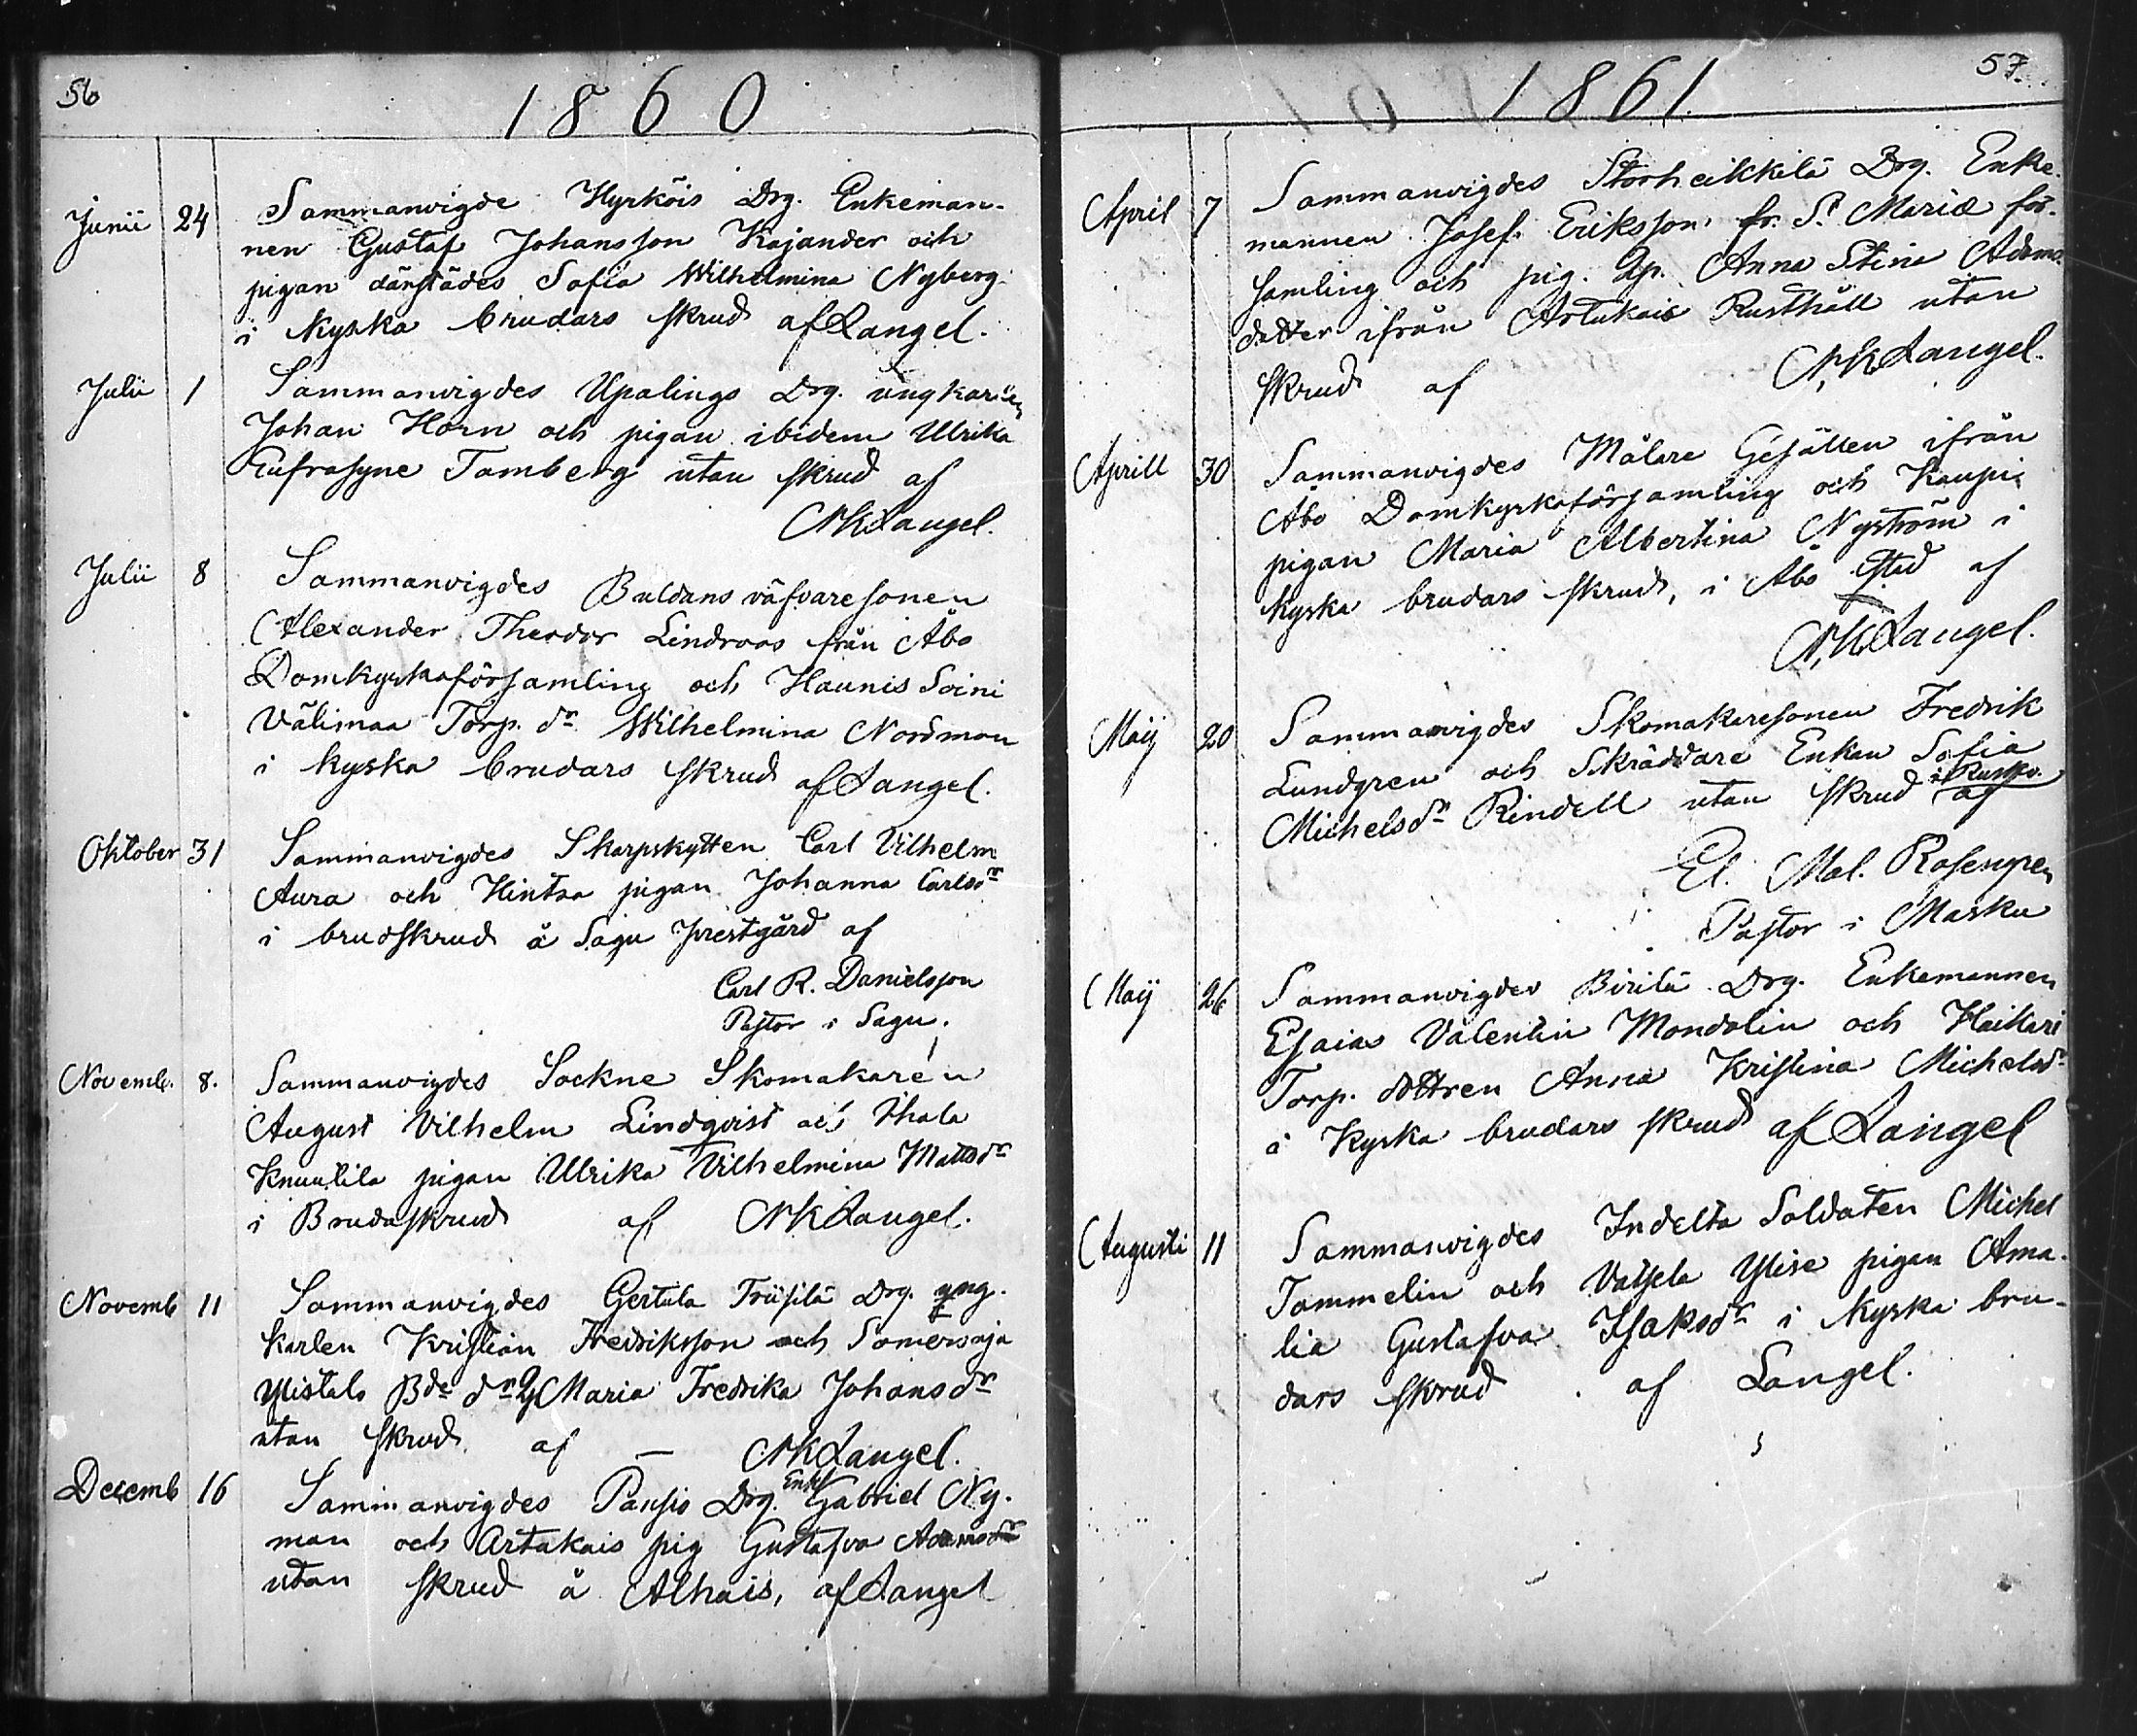 56
1860
Junii 24 Sammanvigde Hyrköis Drg. Enkeman-
nen Gustaf Johansson Kajander och
pigan därstädes Sofia Wilhelmina Nyberg
i Kyska brudars skrud af Langel.
Julii 1 Sammanvigdes Upalings Drg. ungkarlen
Johan Horn och pigan ibidem Ulrika
Eufrosyne Tamberg utan skrud af
NKLangel.
Julii 8 Sammanvigdes Buldans väfvaresonen
Alexander Theodor Lindroos från Åbo
Domkyrkoförsamling och Haunis Soini
Välimaa Torp. dr Wilhelmina Nordman
i kyska brudars skrud af Langel.
Oktober 31 Sammanvigdes Skarpskytten Carl Vilhelm
Aura och Hintsa pigan Johanna Carlsdr
i brudskrud å Sagu prestgård af
Carl R. Danielsson
Pastor i Sagu.
Novemb. 8. Sammanvigdes Sockne Skomakaren
August Vilhelm Lindqvist och Ihala
Knuutila pigan Ulrika Vilhelmina Mattsdr
i Brudaskrud af NKLangel.
Novemb 11 Sammanvigdes Gertula Friisilä Drg. yng-
karlen Kristian Fredriksson och Somersoja
Ylistalo Bde dr Maria Fredrika Johansdr
utan skrud af — NKLangel.
Decemb 16 Sammanvigdes Pansio Drg. Enkl Gabriel Ny-
man och Artukais pig Gustafva Adamsdr
utan skrud å Alhais, af Langel
57.
1861.
April 7 Sammanvigdes Storheikkilä Drg. Enke-
mannen Josef Eriksson fr. St Mariæ för-
samling och pig. Anna Stina Adams-
dotter ifrån Artukais Rusthåll utan
skrud af NKLangel.
Aprill 30 Sammanvigdes Målare Gesällen ifrån
Åbo Domkyrkoförsamling och Kaupis
pigan Maria Albertina Nyström i
kyska brudars skrud, i Åbo stad af
NKLangel.
Maij 20 Sammanvigdes Skomakaresonen Fredrik
Lundgren och Skräddare Enkan Sofia
Michelsdr Rindell utan skrud i Rusko af
El. Mal. Rosengren
Pastor i Masku
Maij 26 Sammanvigdes Birilä Drg. Enkemannen
Esaias Valentin Mondolin och Haikari
Torp. dottren Anna Kristina Michelsdr
i Kyska brudars skrud af Langel
Augusti 11 Sammanvigdes Indelta Soldaten Michel
Tammelin och Vatsela Ylise pigan Ama-
lia Gustafva Isaksdr i Kyska bru-
dars skrud af Langel.